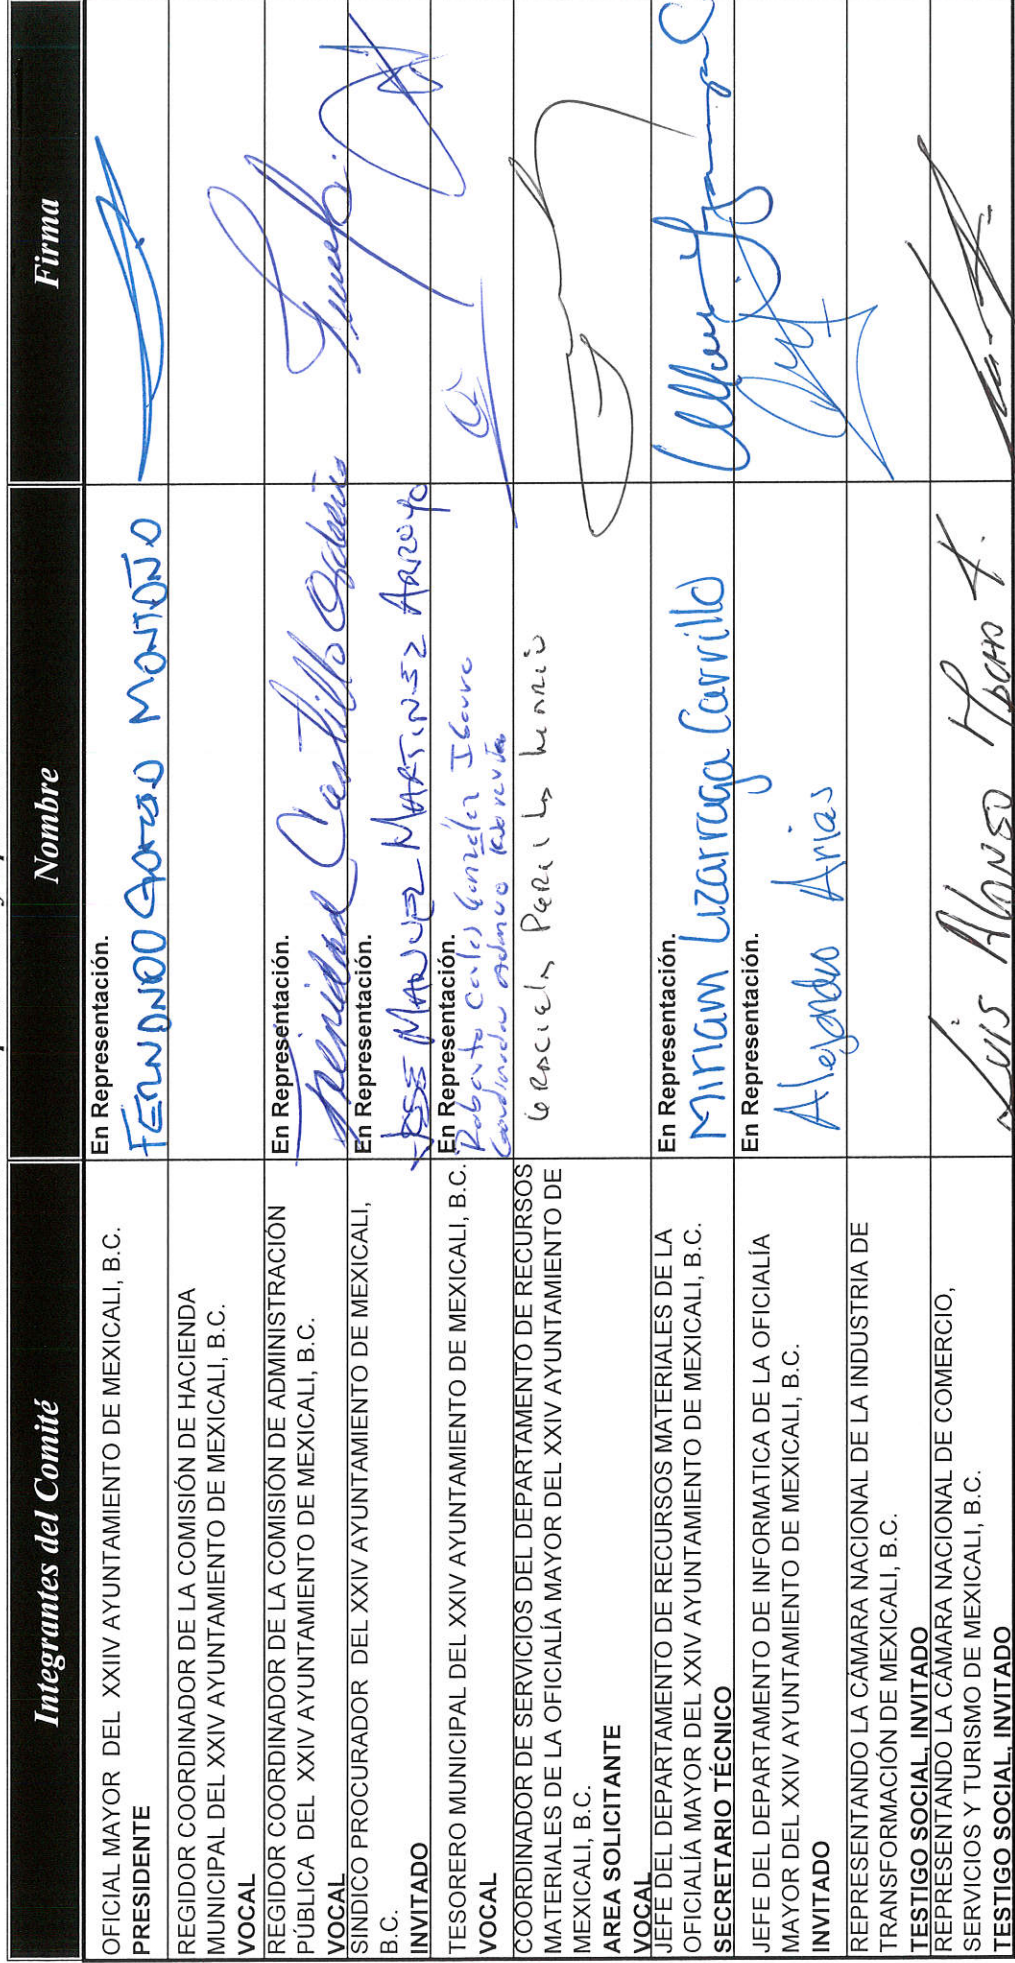 Integrantes del Comité
Nombre
Firma
OFICIAL MAYOR DEL XXIV AYUNTAMIENTO DE MEXICALI, B.C.
PRESIDENTE
En Representación.
FERNANDO MONTAÑO
REGIDOR COORDINADOR DE LA COMISIÓN DE HACIENDA
MUNICIPAL DEL XXIV AYUNTAMIENTO DE MEXICALI, B.C.
VOCAL
REGIDOR COORDINADOR DE LA COMISIÓN DE ADMINISTRACIÓN
PÚBLICA DEL XXIV AYUNTAMIENTO DE MEXICALI, B.C.
VOCAL
En Representación.
Trinidad Castillo
SINDICO PROCURADOR DEL XXIV AYUNTAMIENTO DE MEXICALI,
B.C.
INVITADO
En Representación.
JOSE MANUEL MARTINEZ ARROYO
TESORERO MUNICIPAL DEL XXIV AYUNTAMIENTO DE MEXICALI, B.C.
VOCAL
En Representación.
Roberto Carlos González Ibarra
COORDINADOR DE SERVICIOS DEL DEPARTAMENTO DE RECURSOS
MATERIALES DE LA OFICIALÍA MAYOR DEL XXIV AYUNTAMIENTO DE
MEXICALI, B.C.
AREA SOLICITANTE
VOCAL
Graciela
JEFE DEL DEPARTAMENTO DE RECURSOS MATERIALES DE LA
OFICIALÍA MAYOR DEL XXIV AYUNTAMIENTO DE MEXICALI, B.C.
SECRETARIO TÉCNICO
En Representación.
Miriam Lizarraga Carrillo
JEFE DEL DEPARTAMENTO DE INFORMATICA DE LA OFICIALÍA
MAYOR DEL XXIV AYUNTAMIENTO DE MEXICALI, B.C.
INVITADO
En Representación.
Alejandro Arias
REPRESENTANDO LA CÁMARA NACIONAL DE LA INDUSTRIA DE
TRANSFORMACIÓN DE MEXICALI, B.C.
TESTIGO SOCIAL, INVITADO
REPRESENTANDO LA CÁMARA NACIONAL DE COMERCIO,
SERVICIOS Y TURISMO DE MEXICALI, B.C.
TESTIGO SOCIAL, INVITADO
LUIS ALONSO